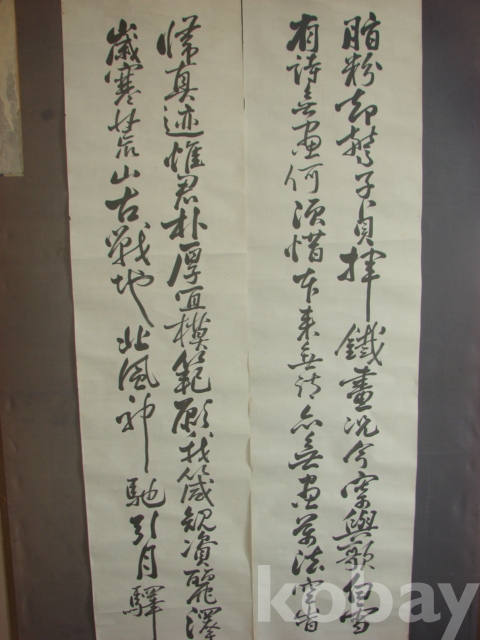 脂粉却子貞揮鐵畫況今與歌白雪
有詩無畫何須惜本來無詩亦無畫萬法空皆
真迹惟君朴厚宜模範願我箴規資麗澤
歲寒荒山古戰地北風神馳引月驛
kobay